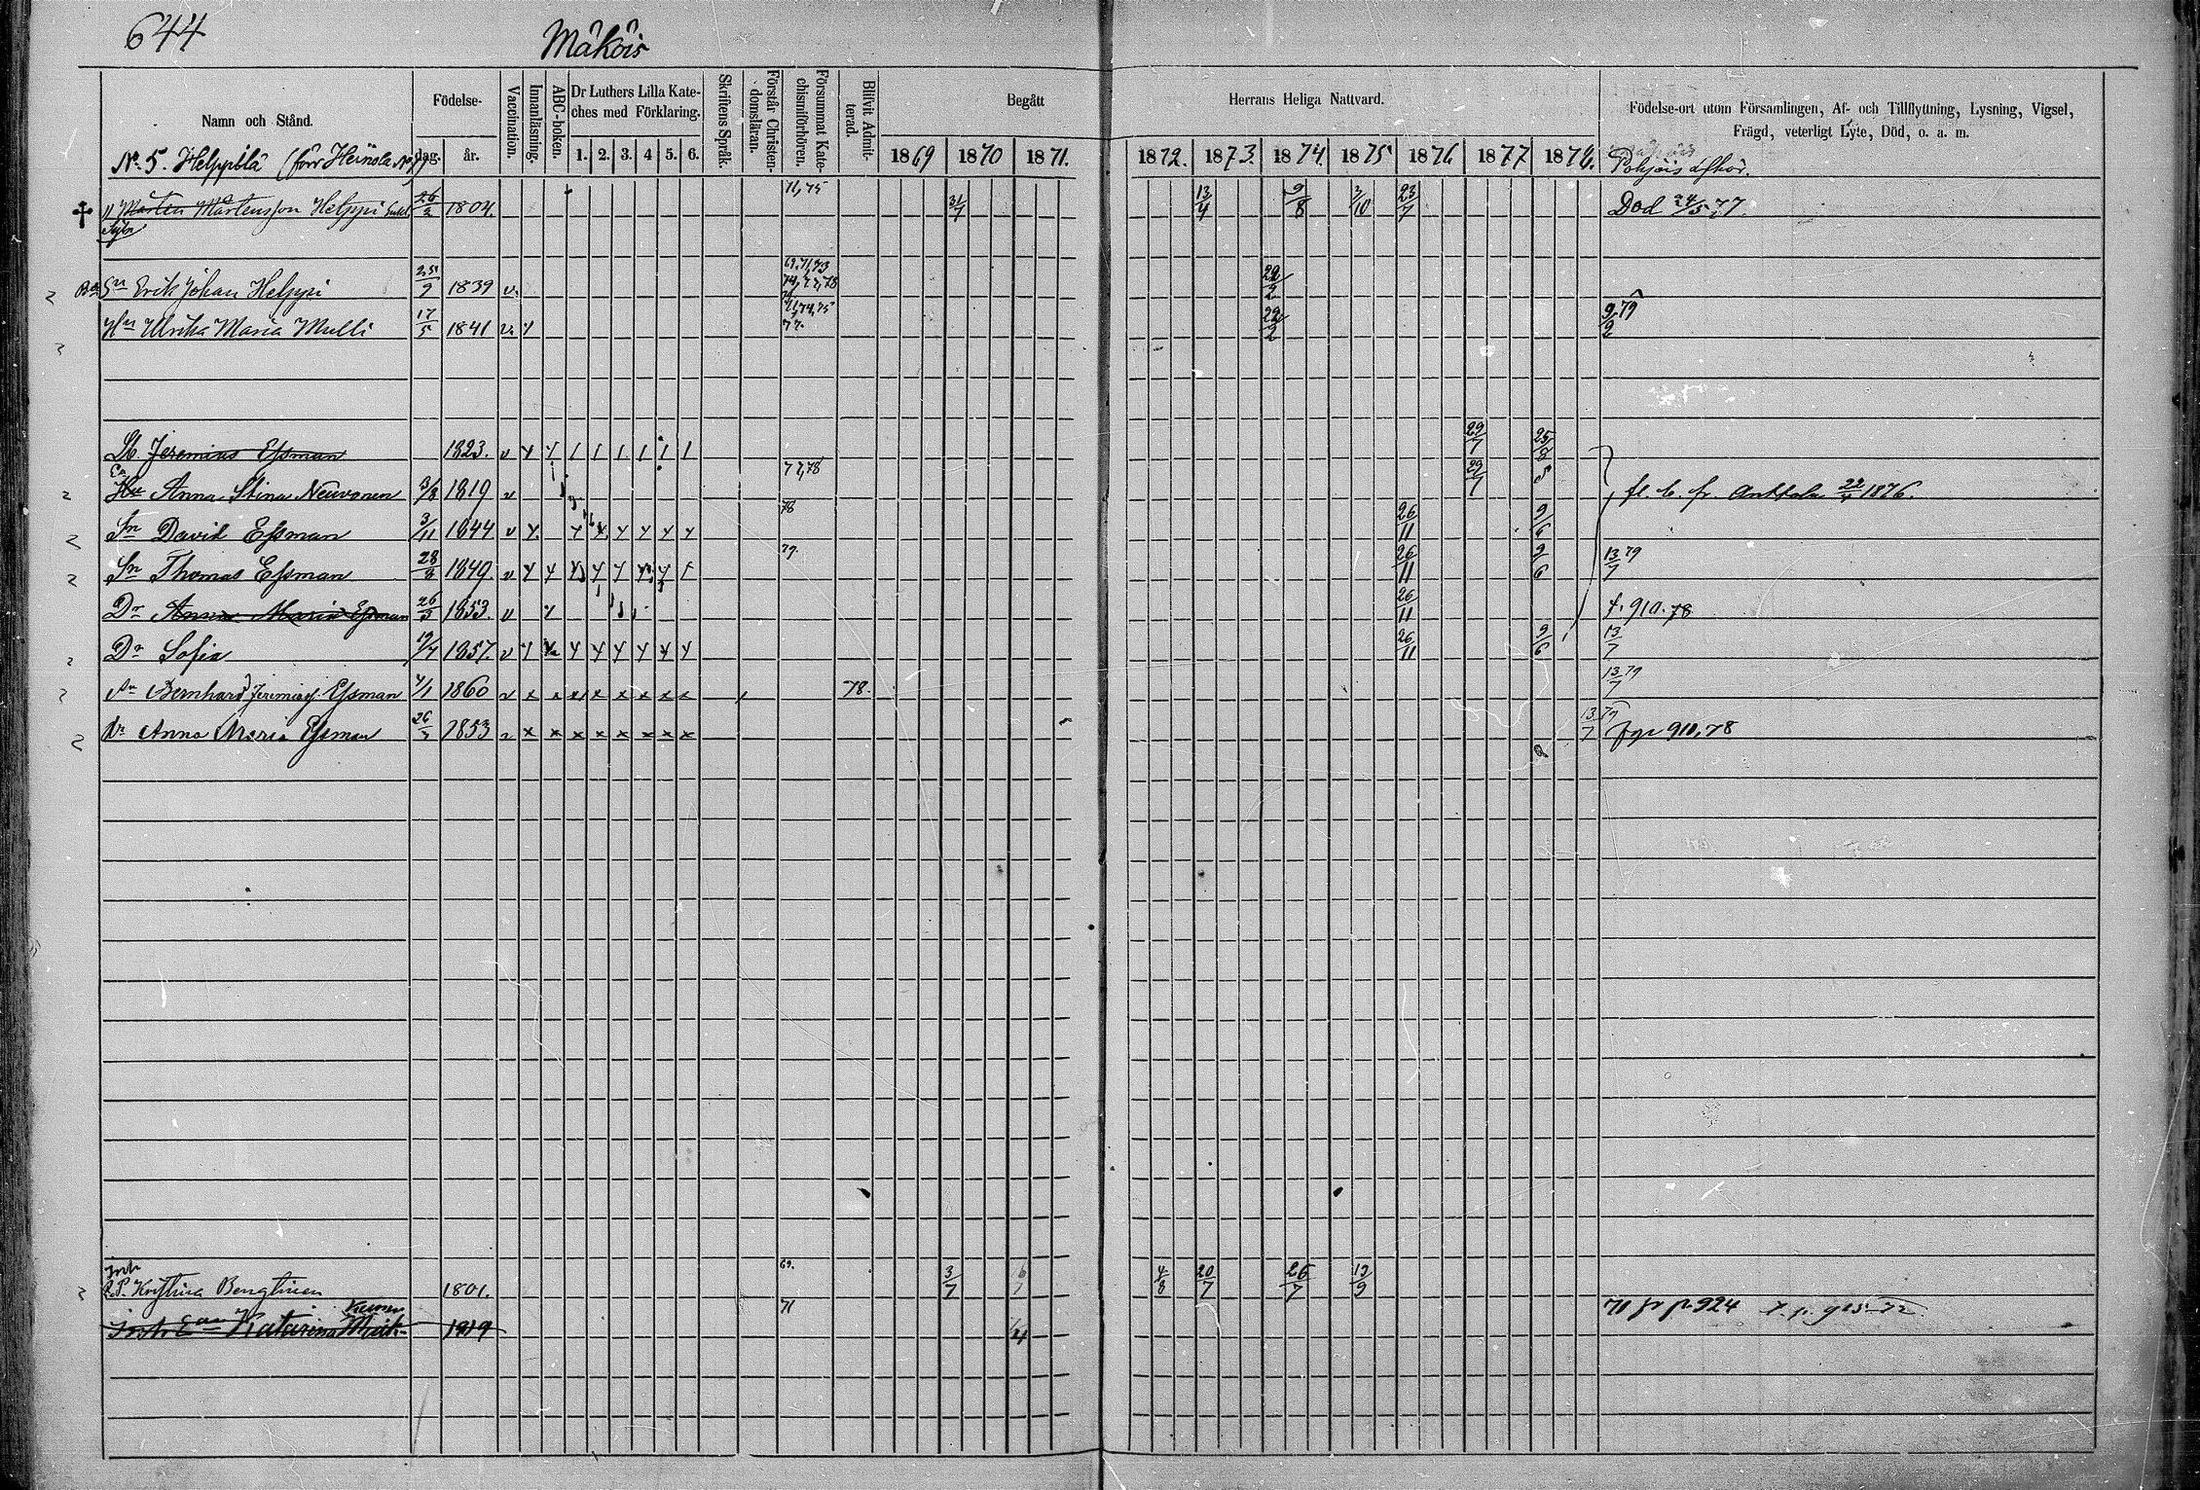 644
Mäköis
Namn och Stånd.
Födelse-
dag.
år.
Vaccination.
Innanläsning.
ABC-boken.
Dr Luthers Lilla Kate-
ches med Förklaring.
1. 2. 3. 4 5. 6.
Skriftens Språk.
Förstår Christen-
domsläran.
Försummat Kate-
chismiförhören.
Blifvit Admit-
terad.
Begått
1869 1870 1871.
Herrans Heliga Nattvard.
1872. 1873. 1874. 1875 1876 1877 1878.
Födelse-ort utom Församlingen, Af- och Tillflyttning, Lysning, Vigsel,
Frägd, veterligt Lyte, Död, o. a. m.
No 5. Helppilä (förr Heinola No
Pohjois
Mårten Mårtensson Helppi 26/3 1804. 71, 75 31/7 13/4 9/8 3/10 23/7 Död 24/5 77.
Sn Erik Johan Helppi 25/9 1839 v. 69, 71, 73 74, 77, 78 22/2
Hu Ulrika Maria Mulli 17/5 1841 v. 71, 74, 75 77. 22/2 9/2 79
Jeremias Essman 1823. v 29/7 25/8
Anna Stina Neuvonen 3/3 1819 v 77, 78 29/7 fl. b. fr. Anttola 1876.
Sn David Essman 3/11 1844 v 78 26/11 9/6
Sn Thomas Essman 28/8 1849. v 79. 26/11 9/6 13/7 79
Dr Anna Maria Essman 26/3 1853. v 26/11 f. 910. 78
Dr Sofia 19/4 1857. v 26/11 9/6 13/7
Sn Bernhard Jeremias Essman 4/1 1860 v x x x x x x x x 78. 13/7 79
Dr Anna Maria Essman 26/3 1853 x x x x x x x 13/7 79 910, 78
Inh
Kristina Bengtinen 1801. 69. 3/7 6/7 4/8 20/7 26/7 19/9
Inh Katarina 1819 71 71 fr p. 924